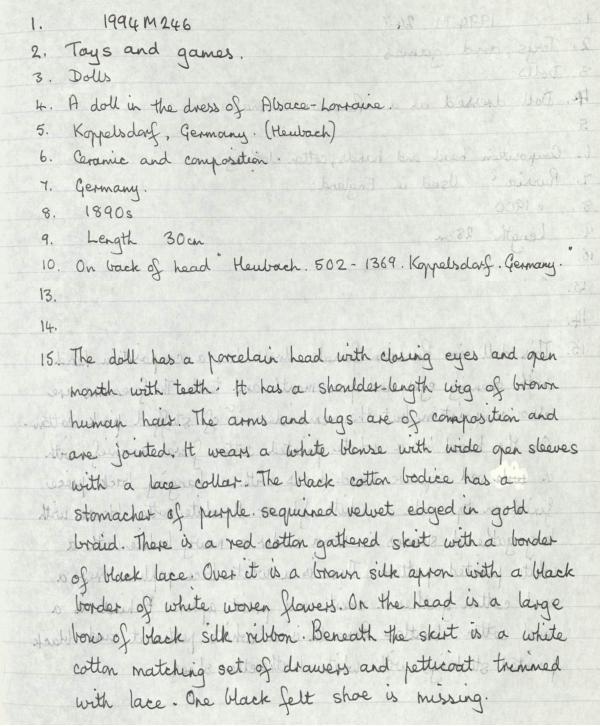 1. 1994M246
2. Toys and games.
3. Dolls
4. A doll in the dress of Alsace-Lorraine.
5. Koppelsdorf, Germany. (Heubach)
6. Ceramic and composition.
7. Germany.
8. 1890s
9. Length 30cm
10. On back of head "Heubach. 502-1369. Koppelsdorf. Germany."
13.
14.
15. The doll has a porcelain head with closing eyes and open
mouth with teeth. It has a shoulder-length wig of brown
human hair. The arms and legs are of composition and
are jointed. It wears a white blouse with wide open sleeves
with a lace collar. The black cotton bodice has a
stomacher of purple sequinned velvet edged in gold
braid. There is a red cotton gathered skirt with a border
of black lace. Over it is a brown silk apron with a black
border of white woven flowers. On the head is a large
bow of black silk ribbon. Beneath the skirt is a white
cotton matching set of drawers and petticoat trimmed
with lace. One black felt shoe is missing.